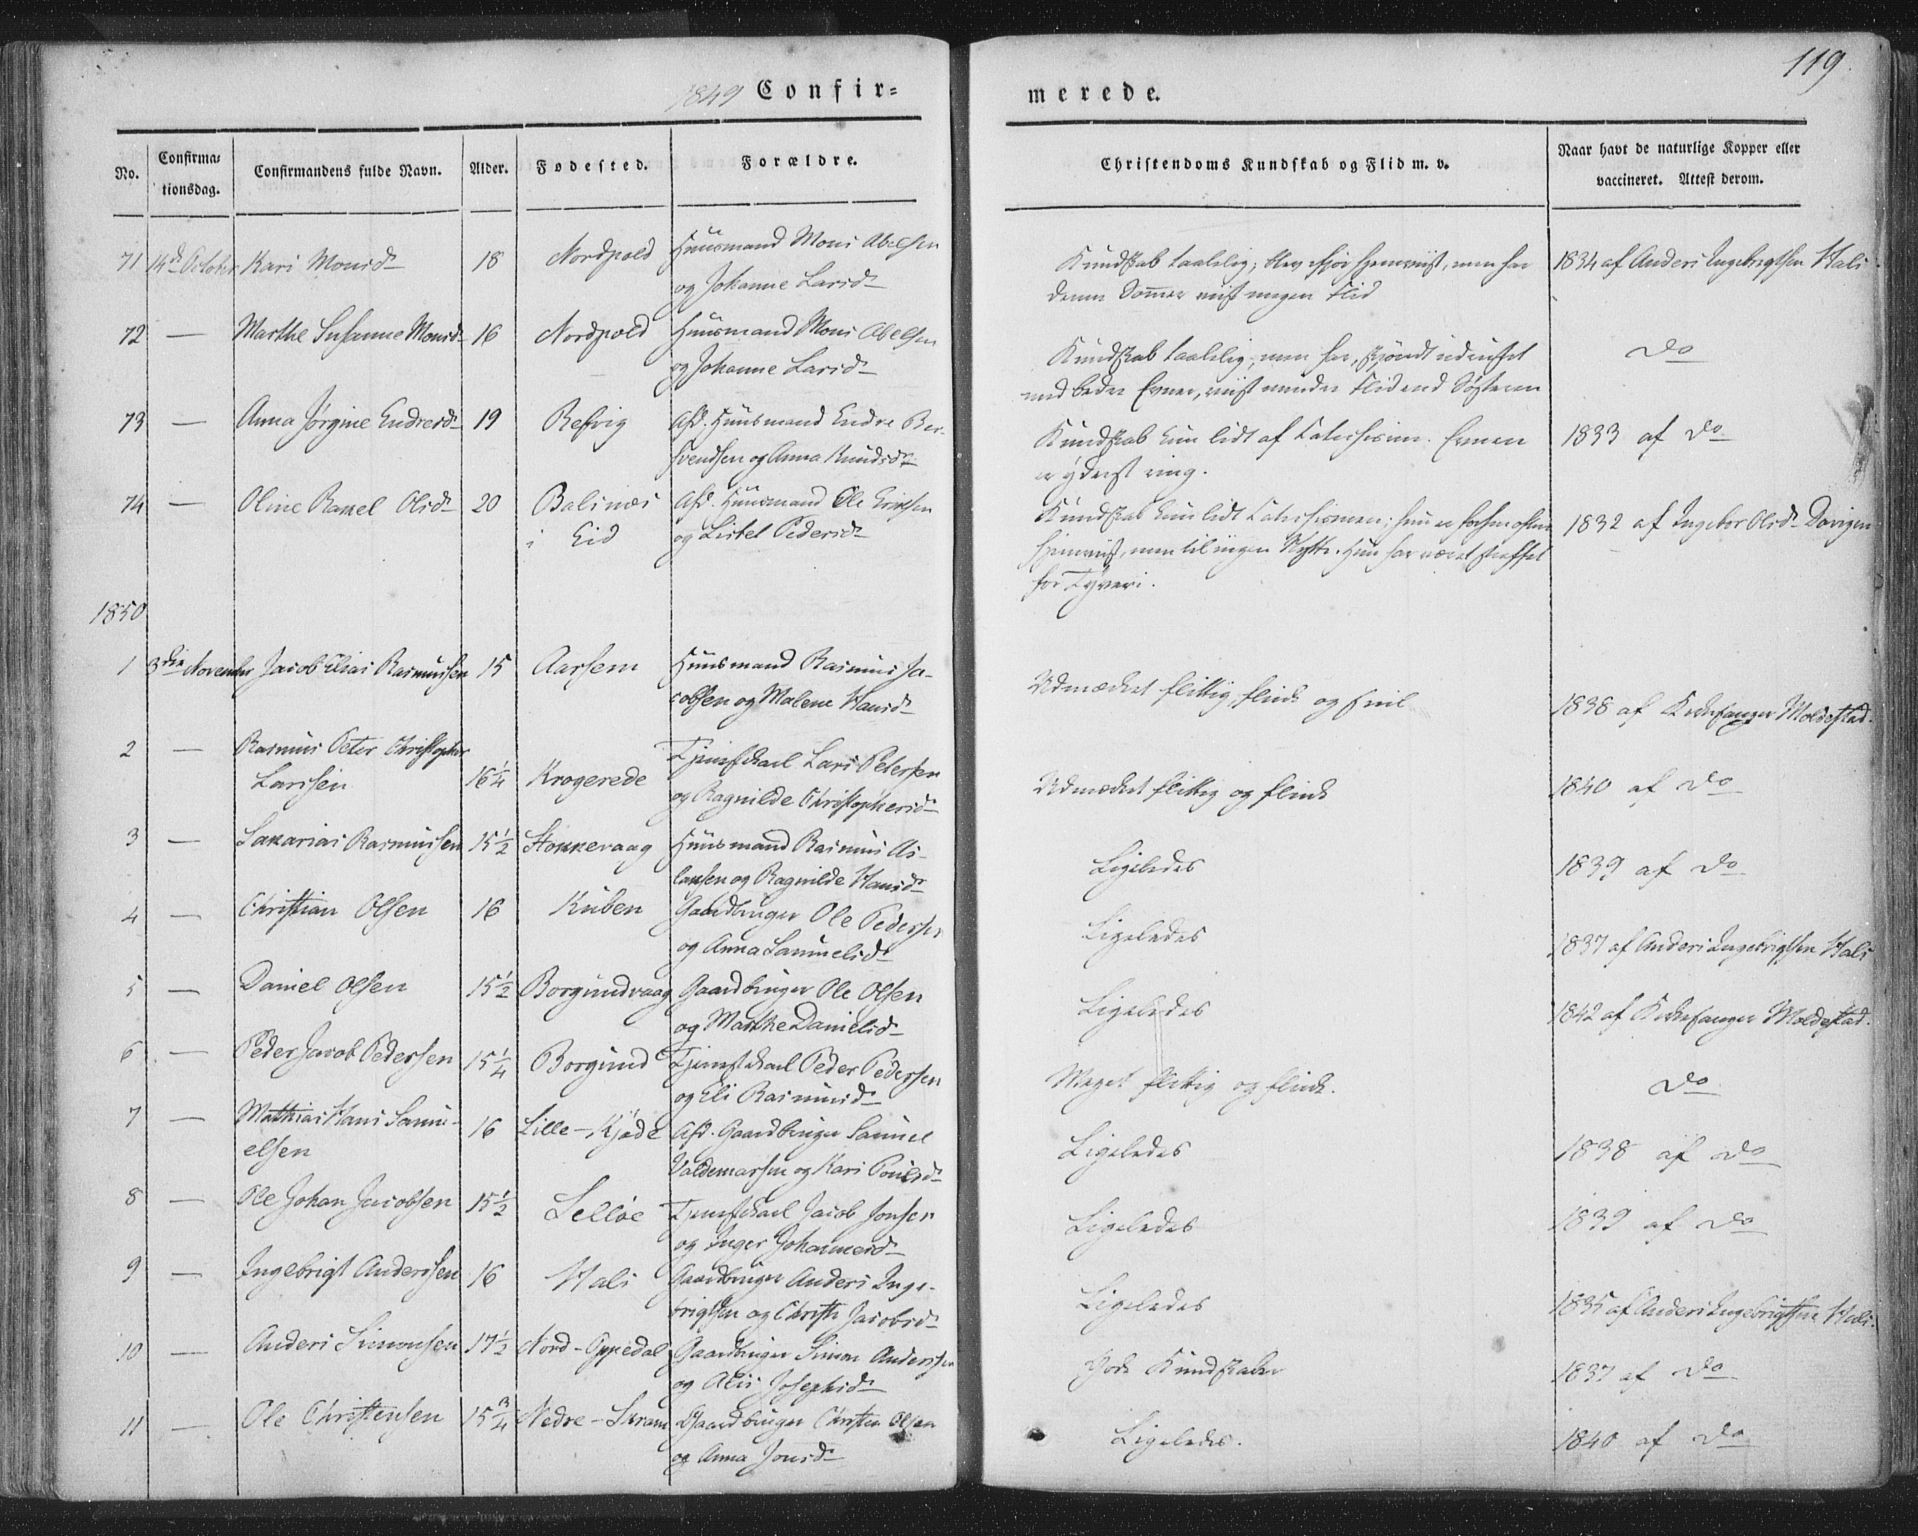 119
1849 Confir=
merede.
No.
Confirma=
tionsdag.
Confirmandens fulde Navn.
Alder.
Fødested.
Forældre.
Christendoms Kundskab og Flid m. v.
Naar havt de naturlige Kopper eller
vaccineret. Attest derom.
71 14de October Kari Monsdr 18 Nordpold Huusmand Mons Abelsen
og Johanne Larsdr
Kundskab taalelig; blev ifjor hjemviist, men har
denne Sommer viist megen Flid
1834 af Anders Ingebrigtsen Hals
72 — Marthe Susanne Monsdr 16 Nordpold Huusmand Mons Abelsen
og Johanne Larsdr
Kundskab taalelig; men har, skjøndt udrustet
med bedre Evner, viist mindre Flid end Søsteren
do
73 — Anna Jørgine Endresdr 19 Refvig Afd. Huusmand Endre Ber-
svendsen og Anna Knudsdr
Kundskab kun lidt af Catechismen. Evnen
er yderst ring.
1833 af do
74 — Oline Rakel Olsdr 20 Balsnæs
i Eid
Afd. Huusmand Ole Ericsen
og Lisbet Pedersdr
Kundskab kun lidt Catechismen; hun er
hjemviist, men til ingen Nytte. Hun har været straffet
for Tyveri.
1832 af Ingebor Olsdr Davigen
1850
1 3die November Jacob Elias Rasmussen 15 Aarsem Huusmand Rasmus Ja-
cobsen og Malene Hansdr
Udmærket flittig, flink og snil
1838 af Kirkesanger Moldestad.
2 — Rasmus Peter Christopher
Larssen
16 1/4 Krogerede Tjenestkarl Lars Petersen
og Ragnilde Christophersdr
Udmærket flittig og flink
1840 af do
3 — Sakarias Rasmussen 15 1/2 Stokkevaag Huusmand Rasmus As-
laksen og Ragnilde Hansdr
Ligeledes
1839 af do
4 — Christian Olsen 16 Kuben Gaardbruger Ole Pedersen
og Anna Samuelsdr
Ligeledes
1837 af Anders Ingebrigtsen Hals
5 — Daniel Olsen 15 1/2 Borgundvaag Gaardbruger Ole Olsen
og Marthe Danielsdr
Ligeledes
1842 af Kirkesanger Moldestad.
6 — Peder Jacob Pedersen 15 1/4 Borgund Tjenestkarl Peder Pedersen
og Eli Rasmusdr
Meget flittig og flink.
do
7 — Mathias Hans Samu-
elsen
16 Lille-Kjøde Afd. Gaardbruger Samuel
Valdemarsen og Kari Poulsdr
Ligeledes
1838 af do
8 — Ole Johan Jacobsen 15 1/2 Selløe Tjenestkarl Jacob Jonsen
og Inger Johannesdr
Ligeledes
1839 af do
9 — Ingebrigt Anderssen 16 Hals Gaardbruger Anders Inge-
brigtsen og Christi Jacobsdr
Ligeledes
1835 af Anders Ingebrigtsen Hals.
10 — Anders Simonsen 17 1/2 Nord-Oppedal Gaardbruger Simon Anderssen
og Alis Josephsdr
Gode Kundskaber
1837 af do
11 — Ole Christensen 15 3/4 Nedre-Skram Gaardbruger Christen Olsen
og Anna Jonsdr
Ligeledes.
1840 af do